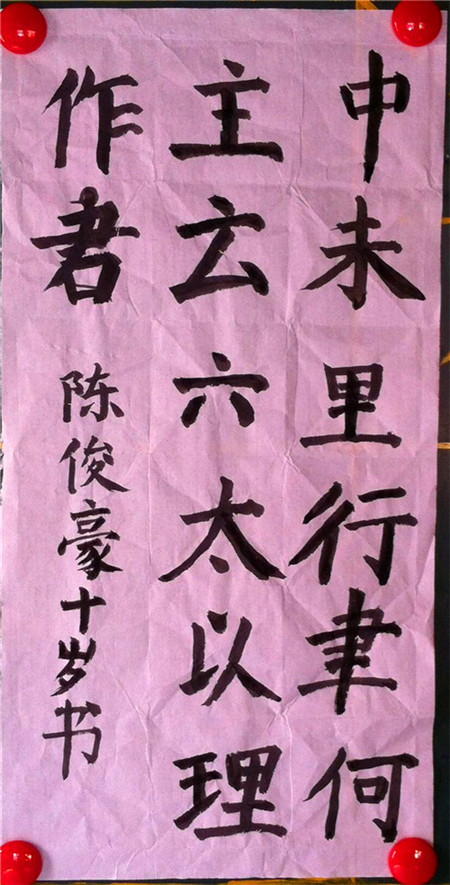 中未里行聿何
主云六太以理
作君
陈俊豪十岁书